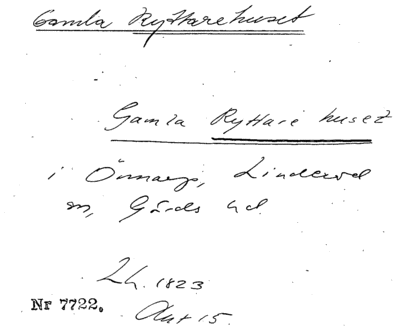 Gamla Ryttarehuset
Gamla Ryttare huset
i Önnarp, Linderöd
sn, Gärds hd.
Lh. 1823
Nr 7722. Akt 15.